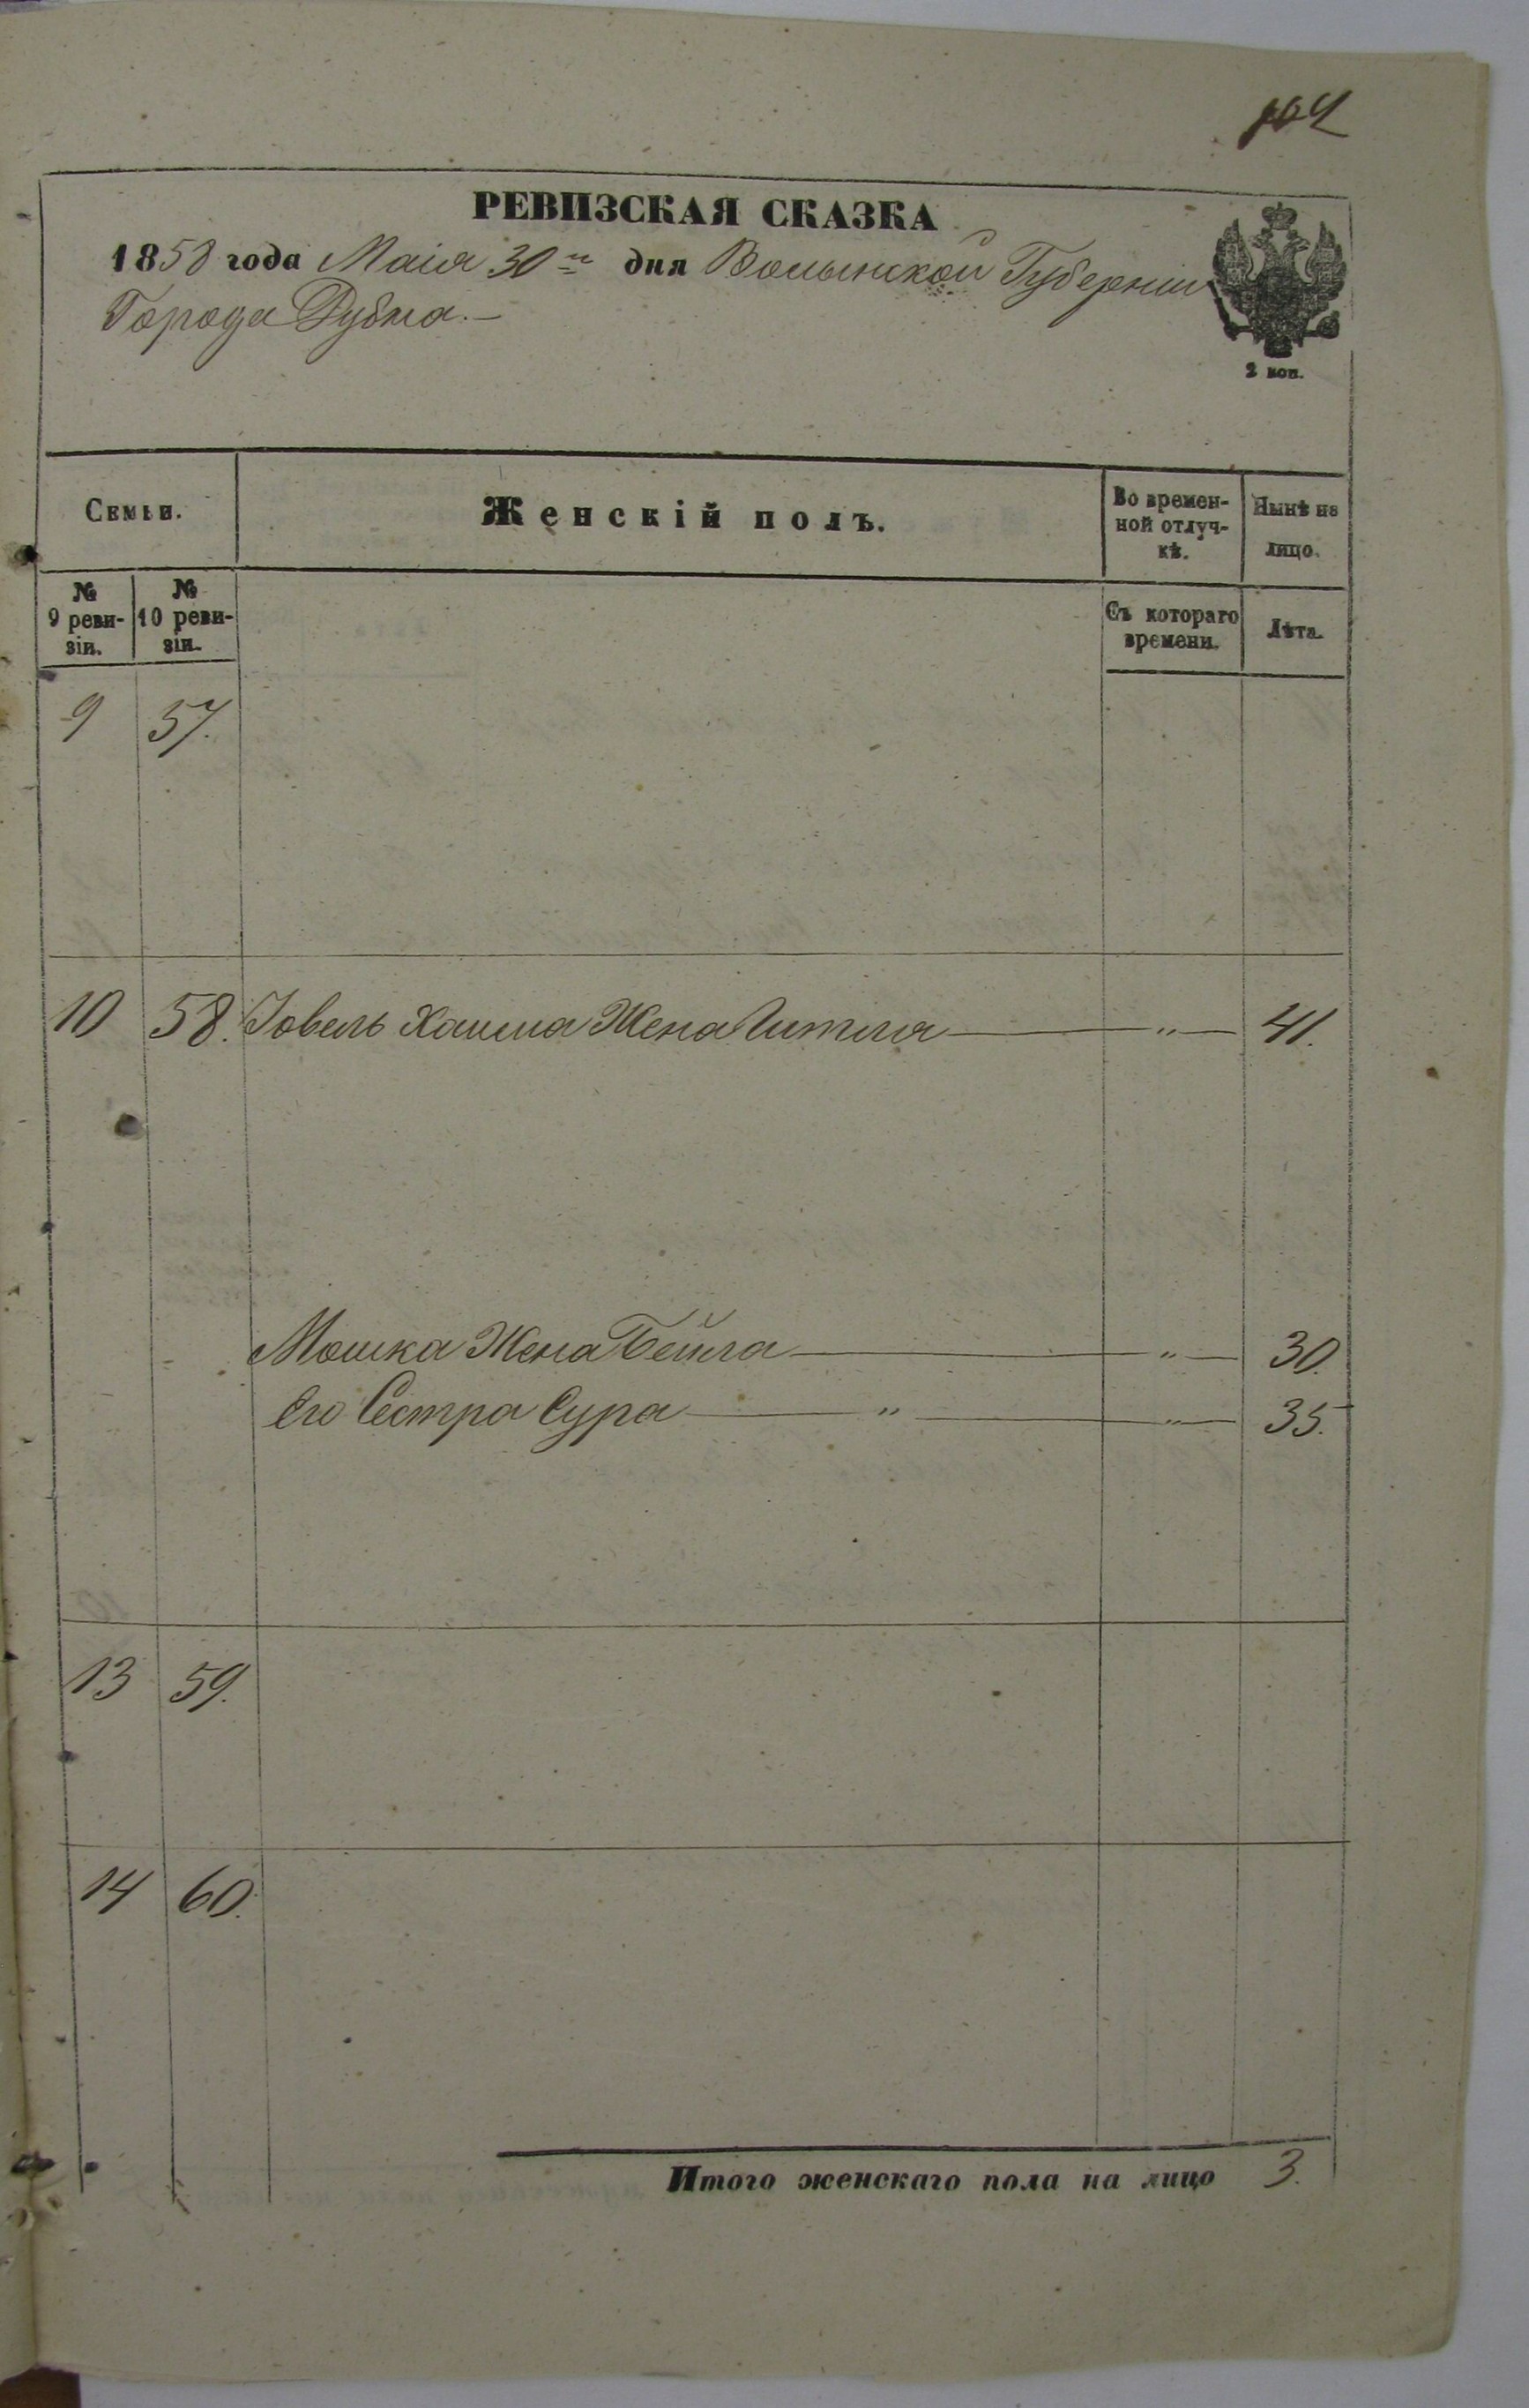 104
РЕВИЗСКАЯ СКАЗКА
1858 года Маія 30го дня Волынской Губерніи
Города Дубна.—
2 коп.
Семьи.
Женскій полъ.
Во времен-
ной отлуч-
кѣ.
Нынѣ на
лицо.
№
9 реви-
зіи.
№
10 реви-
зіи.
Съ котораго
времени.
Лѣта.
9 57.
10 58. Іовель Хаима Жена Гитля — " — 41.
Мошка Жена Бейла — " — 30.
Его Сестра Сура — " — " — 35.
13 59.
14 60.
Итого женскаго пола на лицо 3.